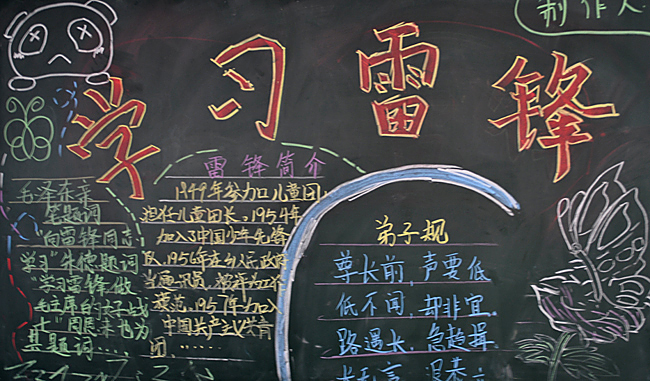 制作人
学习雷锋
毛泽东亲
笔题词
"向雷锋同志
学习"朱德题词
"学习雷锋做
毛主席的好战
士"周恩来也为
其题词...
雷锋简介
1949年参加儿童团,
担任儿童团长,1954年
加入了中国少年先锋
队,1956年在乡人民政府
当通讯员,被评为工作
模范,1957年加入
中国共产主义青年
团,......
弟子规
尊长前,声要低
低不闻,却非宜.
路遇长,急趋揖.
长无言,退恭